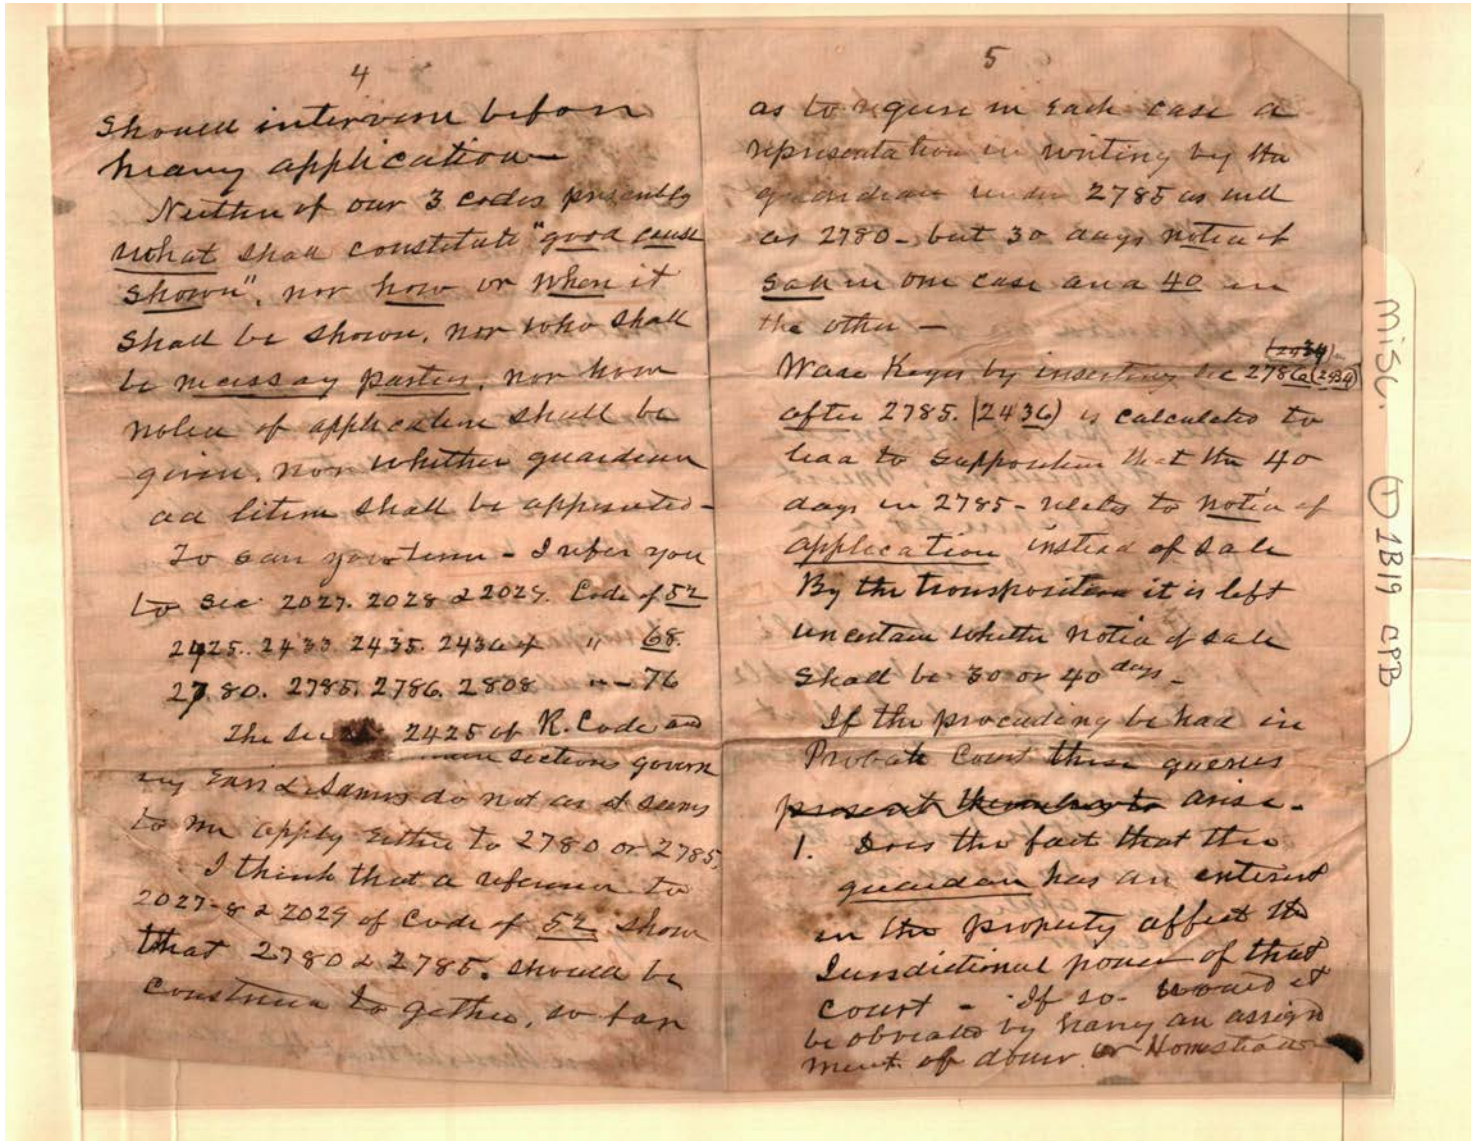 4
Should intervene before
hearing application
Neither of our 3 codes presently
what shall constitute "good cause
shown", nor how or when it
shall be shown, nor who shall
be necessay parties, nor how
notice of application shall be
given, nor whether guardian
ad litem shall be appointed -
To save you time - I refer you
to Sec 2027. 2028 & 2029. Code of 52
2425. 2433. 2435. 2436 of " 68.
2780. 2785. 2786. 2808 " - 76
The Sec 2425 of R. Code and
sections govern
ing do not as it seems
to me apply either to 2780 or 2785.
I think that a reference to
2027-8 & 2029 of Code of 52 show
that 2780 & 2785. should be
construed to gether, so far
5
as to require in each case a
representation in writing by the
guardian under 2785 as well
as 2780 - but 30 days notice of
sale in one case and 40 in
the other -
(2434)
Wade Keyes by inserting Sec 2786 (2434)
after 2785. (2436) is calculated to
lead to supposition that the 40
days in 2785 - relates to notice of
application instead of sale
By the transposition it is left
uncertain whether notice of sale
shall be 30 or 40 days -
If the proceeding be had in
Probate Court these queries
present themselves to arise -
1. Does the fact that the
guardian has an interest
in the property affect the
Jurisdictional power of that
court - If so - would it
be obviated by having an assign
ment of dower or Homestead
Misc. 1B19 CPB